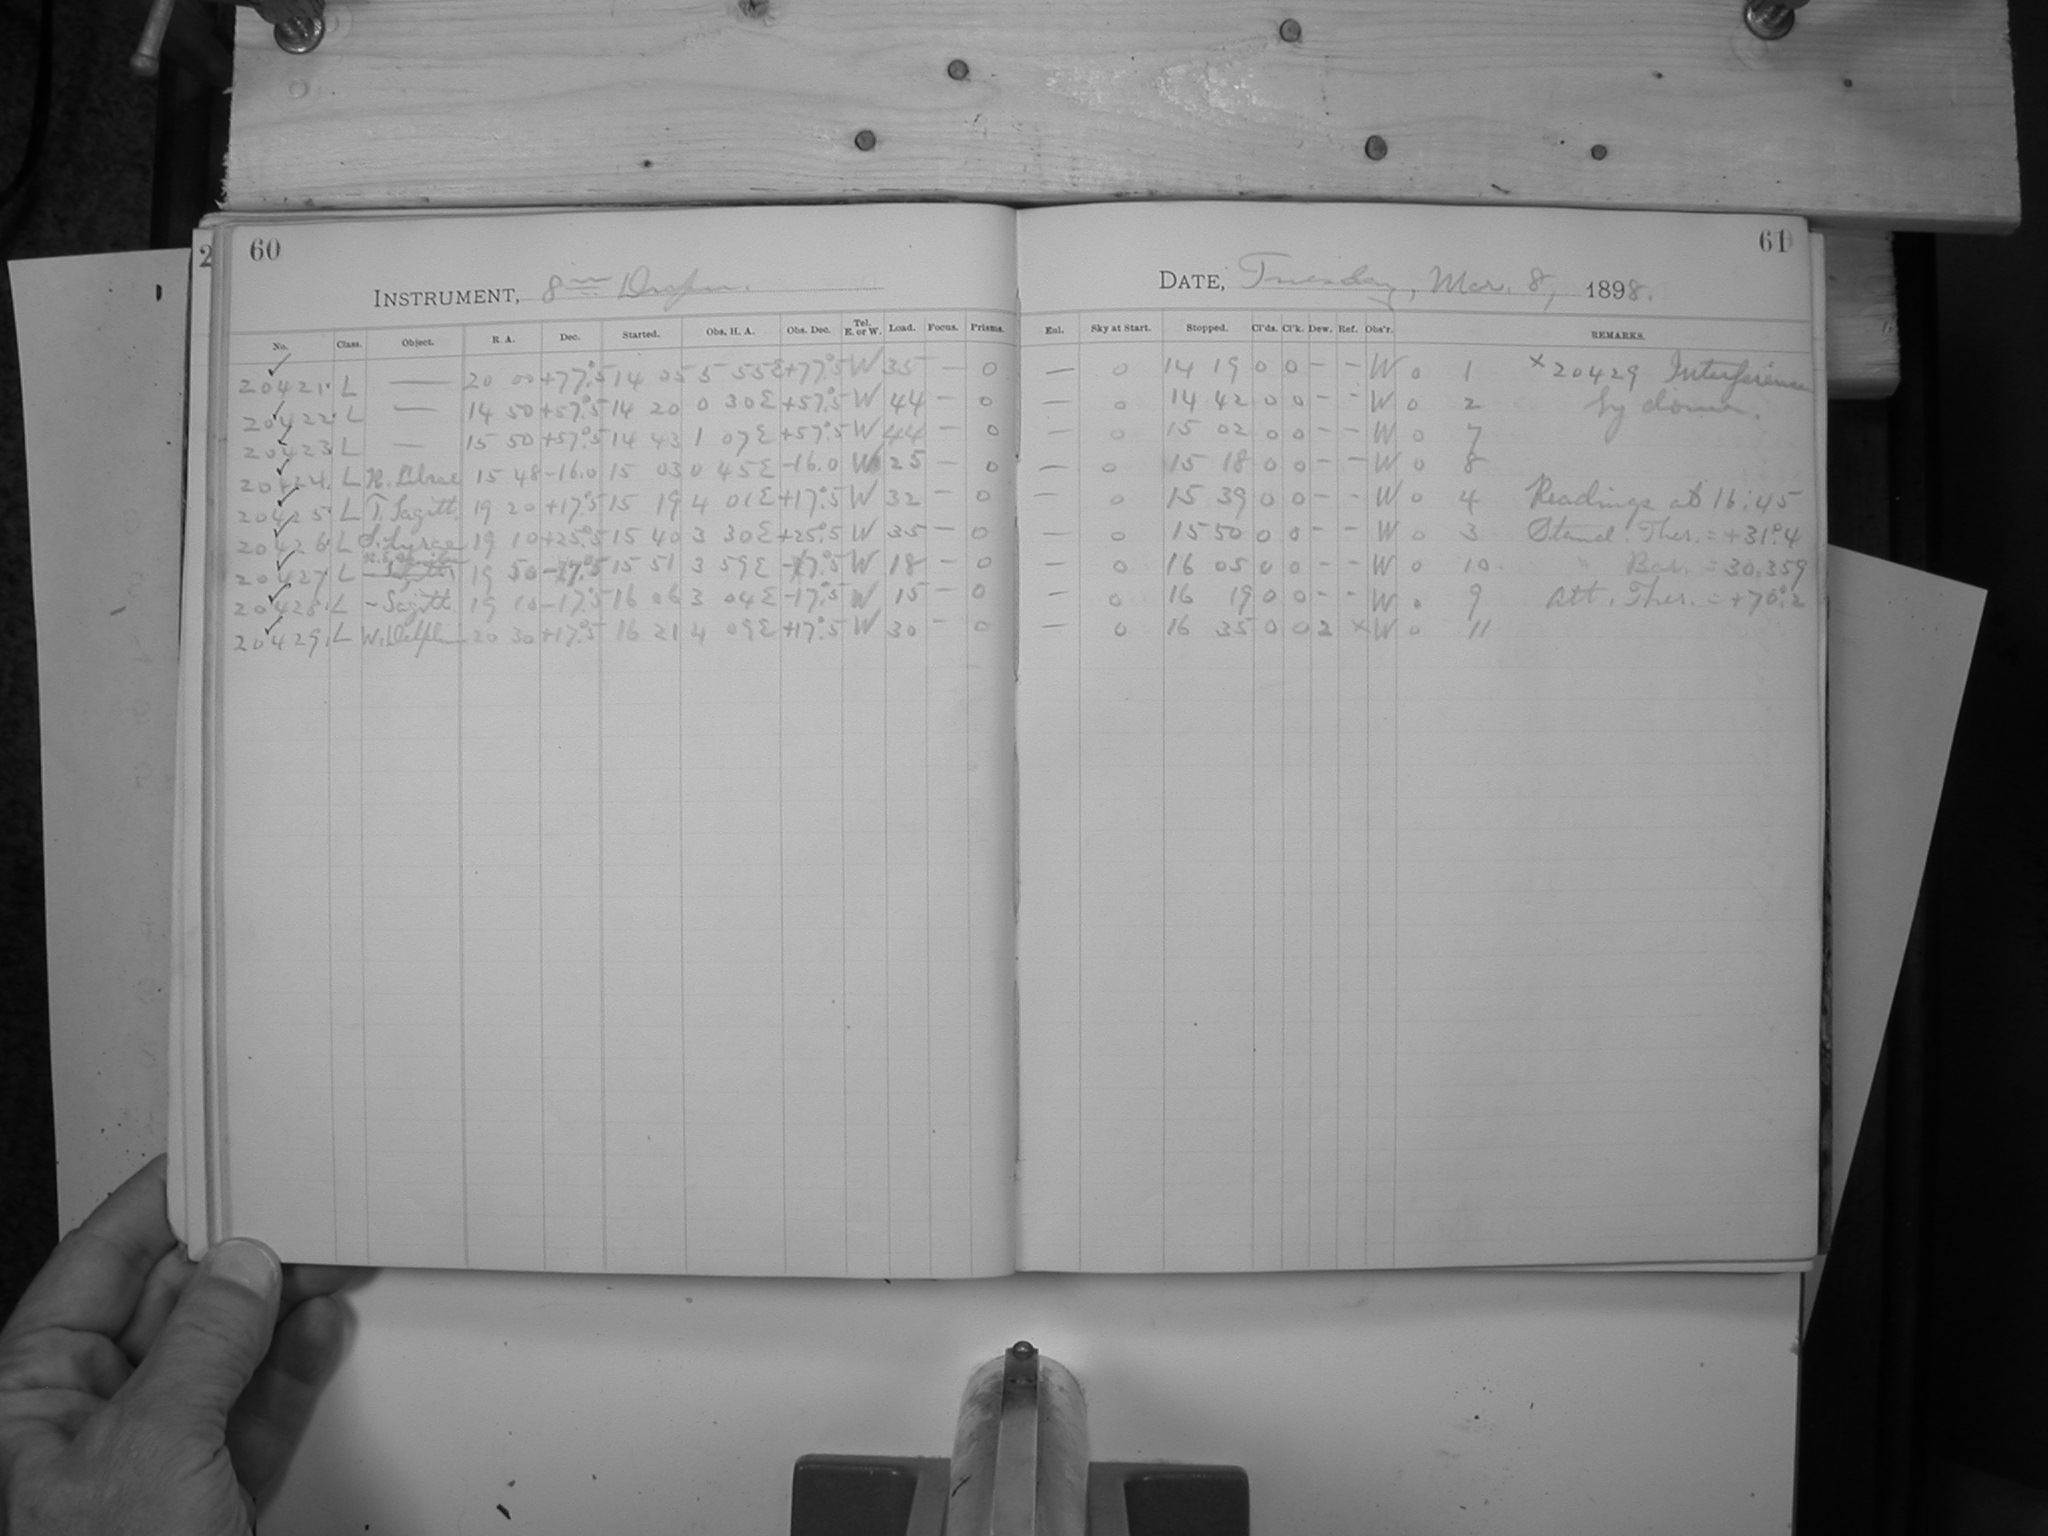 2
60
INSTRUMENT, 8 in Draper.
No. Class. Object. R. A. Dec. Started. Obs. H. A. Obs. Dec. Tel. E. or W. Load. Focus. Prisms.
20421. L — 20 00 +77°.5 14 05 5 55 E +77°.5 W 35 — 0
20422. L — 14 50 +57°.5 14 20 0 30 E +57°.5 W 44 — 0
20423 L — 15 50 +57°.5 14 43 1 07 E +57°.5 W 44 — 0
20424. L Librae 15 48 -16.0 15 03 0 45 E -16.0 W 25 — 0
20425. L T. Sagitt. 19 20 +17°.5 15 19 4 01 E +17°.5 W 32 — 0
20426. L Lyrae 19 10 +25°.5 15 40 3 30 E +25°.5 W 35 — 0
20427. L 19 50 15 51 3 59 E W 18 — 0
20428. L - Sagitt. 19 10 -17°.5 16 06 3 04 E -17°.5 W 15 — 0
20429. L W. Delphin 20 30 +17°.5 16 21 4 09 E +17°.5 W 30 — 0
61
DATE, Tuesday, Mar. 8, 1898.
Enl. Sky at Start. Stopped. Cl'ds. Cl'k. Dew. Ref. Obs'r. REMARKS.
— 0 14 19 0 0 – – W 0 1 × 20429 Interference
— 0 14 42 0 0 – – W 0 2 by dome.
— 0 15 02 0 0 – – W 0 7
— 0 15 18 0 0 – – W 0 8
— 0 15 39 0 0 – – W 0 4 Readings at 16:45
— 0 15 50 0 0 – – W 0 3 Stand. Ther. = +31°.4
— 0 16 05 0 0 – – W 0 10. " Bar. = 30.359
— 0 16 19 0 0 – – W 0 9 Att. Ther. = +70°.2
— 0 16 35 0 0 2 × W 0 11